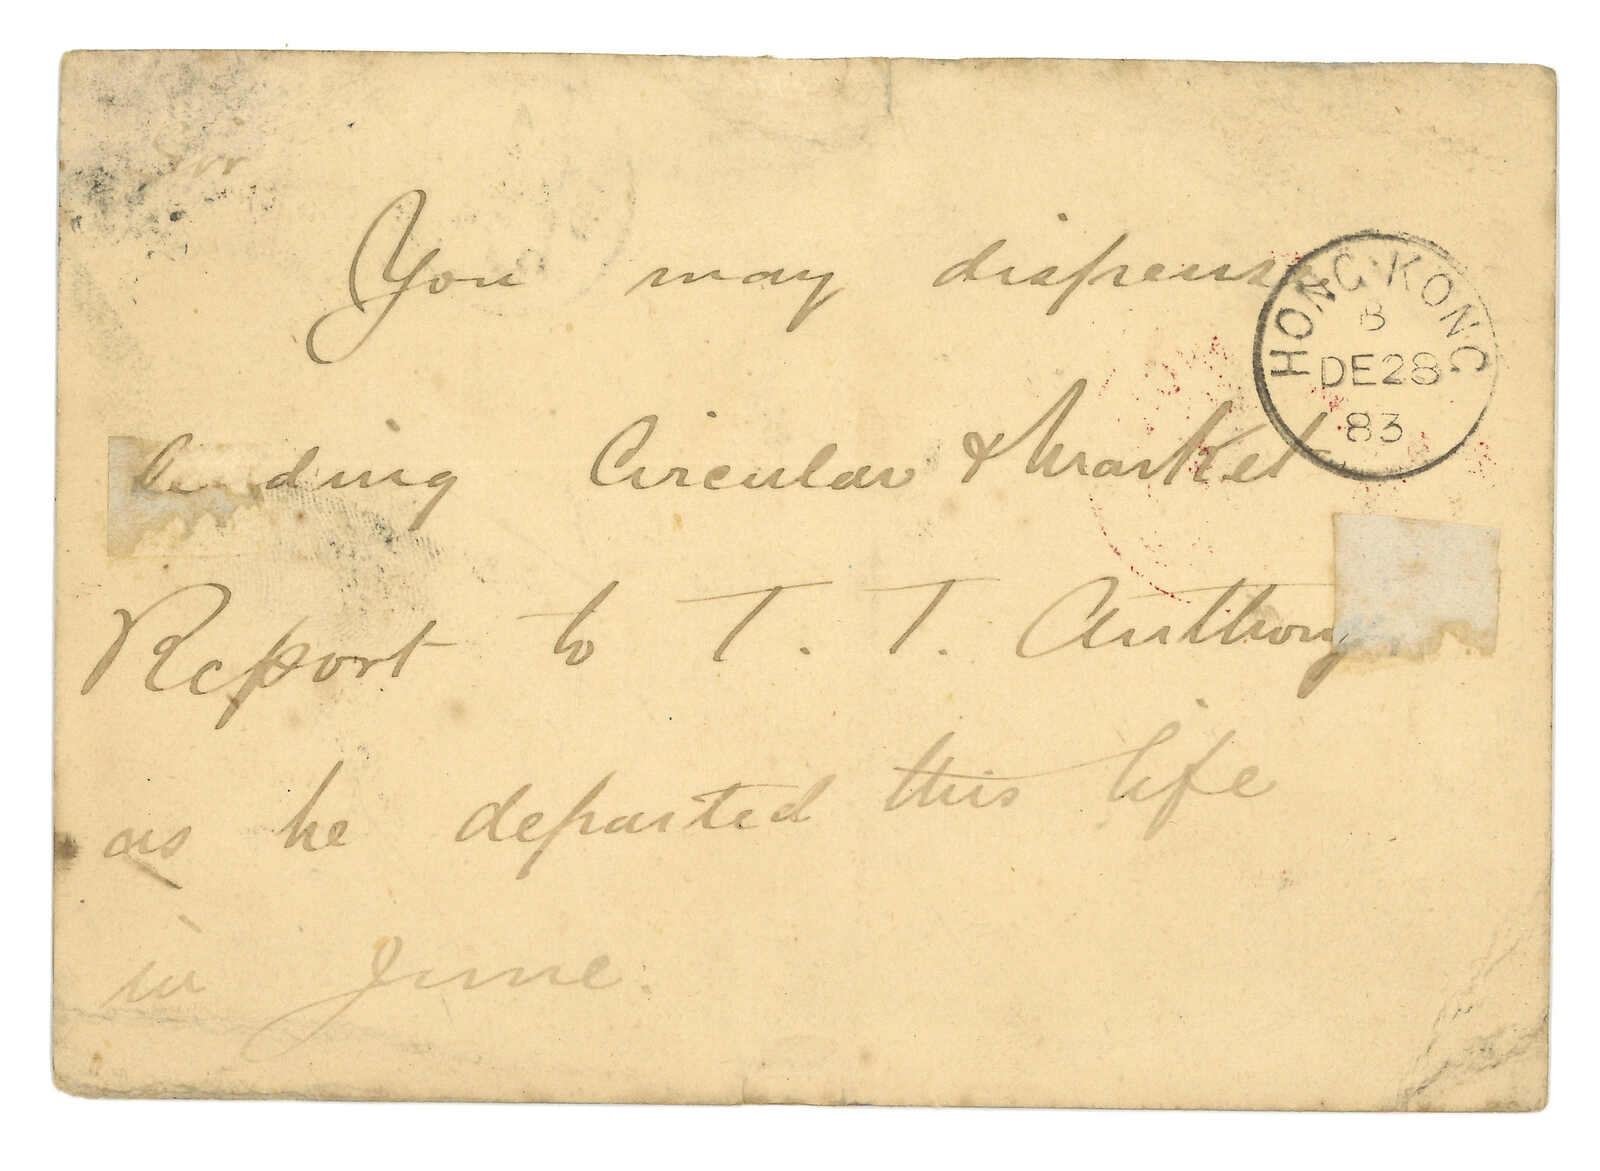 You may dispense
sending Circular & Market
Report to T. T. Anthony
as he departed this life
in June.
HONG KONG
B
DE 28
83